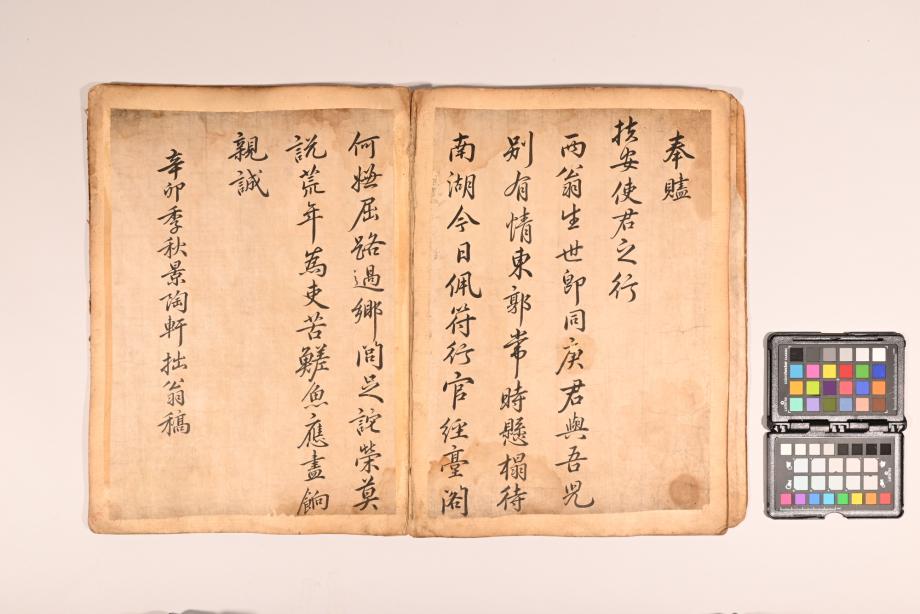 奉贐
扶安使君之行
兩翁生世卽同庚君與吾兄
别有情東郭常時懸榻待
南湖今日佩符行官經臺閣
何嫌屈路過鄉閭足詑榮莫
說荒年為吏苦鱃魚應盡餉
親誠
辛卯季秋景陶軒拙翁稿